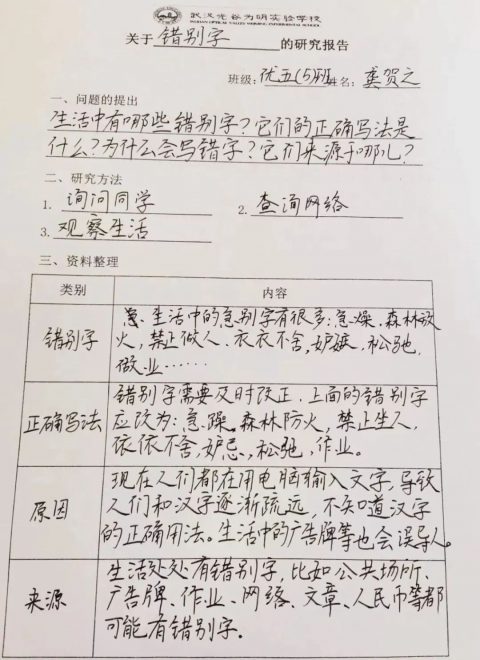 武汉光谷为明实验学校
WUHAN OPTICAL VALLEY WEIMING EXPERIMENTAL SCHOOL
关于 错别字 的研究报告
班级:优五(5)班 姓名:龚贺之
一、问题的提出
生活中有哪些错别字?它们的正确写法是
什么?为什么会写错字?它们来源于哪儿?
二、研究方法
1. 询问同学 2. 查询网络
3. 观察生活
三、资料整理
类别 内容
错别字
生活中的急别字有很多:急燥、森林放
火,禁止做人、衣衣不舍,妒嫉,松驰,
做业……
正确写法
错别字需要及时改正.上面的错别字
应改为:急躁、森林防火,禁止坐人,
依依不舍,妒忌,松驰,作业。
原因
现在人们都在用电脑输入文字,导致
人们和汉字逐渐疏远,不知道汉字
的正确用法。生活中的广告牌等也会误导人。
来源
生活处处有错别字,比如公共场所、
广告牌、作业、网络、文章、人民币等都
可能有错别字。